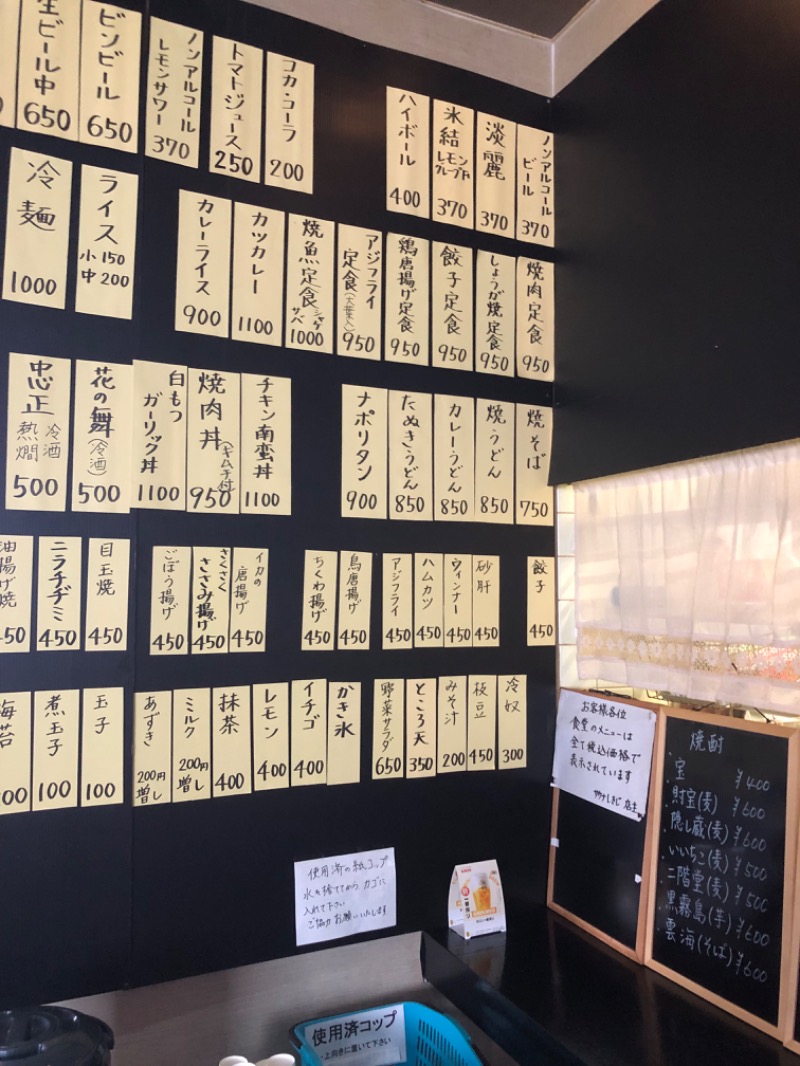 生ビール中
650
ビンビール
650
ノンアルコール
レモンサワー
370
トマトジュース
250
コカ・コーラ
200
ハイボール
400
氷結
レモン
370
淡麗
370
ノンアルコール
ビール
370
冷麺
1000
ライス
小150
中200
カレーライス
900
カツカレー
1100
焼魚定食
シャケ
サバ
1000
アジフライ
定食(大葉入)
950
鶏唐揚げ定食
950
餃子定食
950
しょうが焼定食
950
焼肉定食
950
忠正
冷酒
熱燗
500
花の舞
(冷酒)
500
白もつ
ガーリック丼
1100
焼肉丼
(キムチ付)
950
チキン南蛮丼
1100
ナポリタン
900
たぬきうどん
850
カレーうどん
850
焼うどん
850
焼そば
750
油揚げ焼
450
ニラチヂミ
450
目玉焼
450
ごぼう揚げ
450
さくさく
ささみ揚げ
450
イカの
唐揚げ
450
ちくわ揚げ
450
鳥唐揚げ
450
アジフライ
450
ハムカツ
450
ウィンナー
450
砂肝
450
餃子
450
海苔
煮玉子
100
玉子
100
あずき
200円
増し
ミルク
200円
増し
抹茶
400
レモン
400
イチゴ
400
かき氷
野菜サラダ
650
ところ天
350
みそ汁
200
枝豆
450
冷奴
300
お客様各位
食堂のメニューは
全て税込価格で
表示されています
店主
焼酎
・宝 ¥400
・財宝(麦) ¥600
・隠し蔵(麦) ¥600
・いいちこ(麦) ¥500
・二階堂(麦) ¥500
・黒霧島(芋) ¥600
・雲海(そば) ¥600
使用済の紙コップ
水を捨ててから、カゴに
入れて下さい
ご協力お願いいたします
使用済コップ
・上向きに置いて下さい